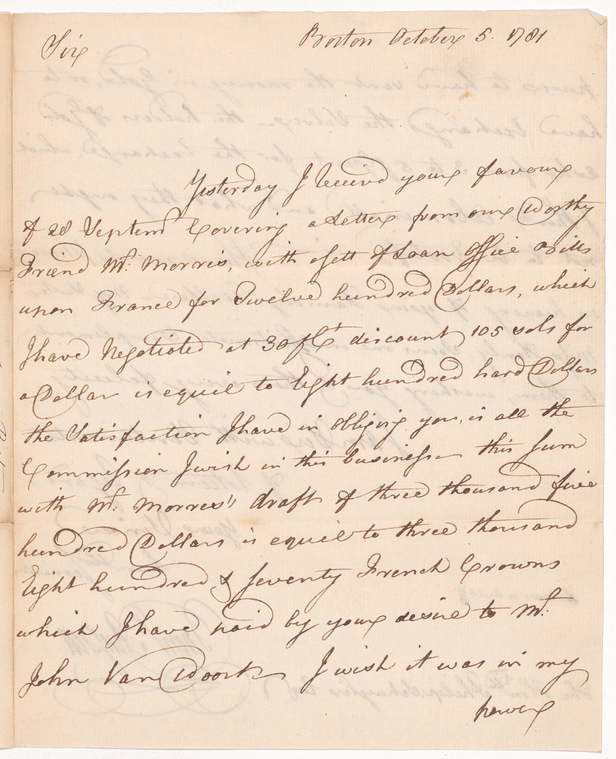 Boston October 5. 1781
Sir
Yesterday I receivd your favour
of 28 Septemr Covering a Letter from our Worthy
Friend Mr. Morris, with a sett of Loan Office Bills
upon France for Twelve hundred Dollars, which
I have Negotiated at 30 P Ct discount 105 sols for
a Dollar is equil to Eight hundred hard Dollars
the Satisfaction I have in obliging you, is all the
Commission I wish in this business this sum
with Mr. Morris's draft of three thousand five
hundred Dollars is equil to three thousand
Eight hundred & seventy French Crowns
which I have paid by your desire to Mr.
John Van Woort I wish it was in my
power